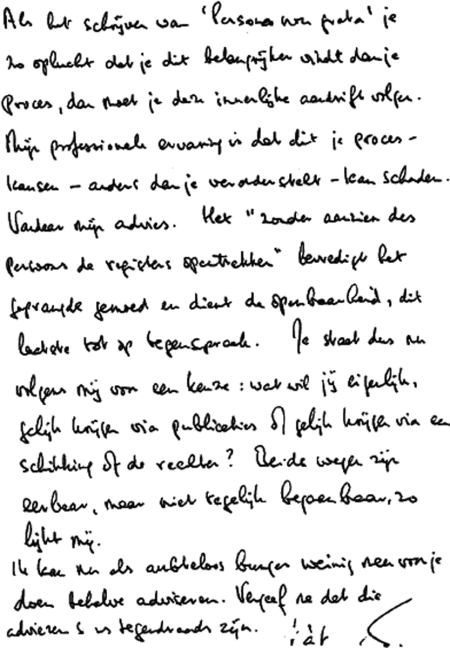 Als het schrijven van 'Persona non grata' je
zo oplucht dat je dit belangrijker vindt dan je
proces, dan moet je deze innerlijke aandrift volgen.
Mijn professionele ervaring is dat dit je proces-
kansen – anders dan je veronderstelt – kan schaden.
Vandaar mijn advies. Het "zonder aanzien des
persoons de registers opentrekken" bevredigt het
geprangde gemoed en dient de openbaarheid, dit
laatste tot op tegenspraak. Je staat dus nu
volgens mij voor een keuze: wat wil jij eigenlijk,
gelijk krijgen via publicaties of gelijk krijgen via een
schikking of de rechter? Beide wegen zijn
eerbaar, maar niet tegelijk begaanbaar, zo
lijkt mij.
Ik kan nu als ambteloos burger weinig meer voor je
doen behalve adviseren. Vergeef me dat die
adviezen s vs tegendraads zijn.